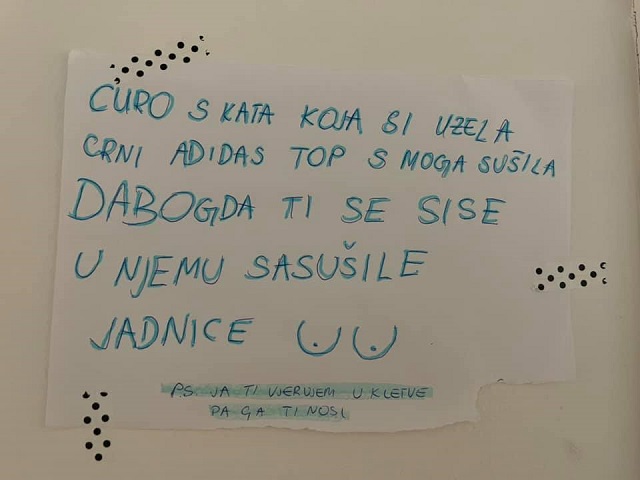 CURO S KATA KOJA SI UZELA
CRNI ADIDAS TOP S MOGA SUŠILA
DABOGDA TI SE SISE
U NJEMU SASUŠILE
JADNICE
PS JA TI VJERUJEM U KLETVE
PA GA TI NOSI